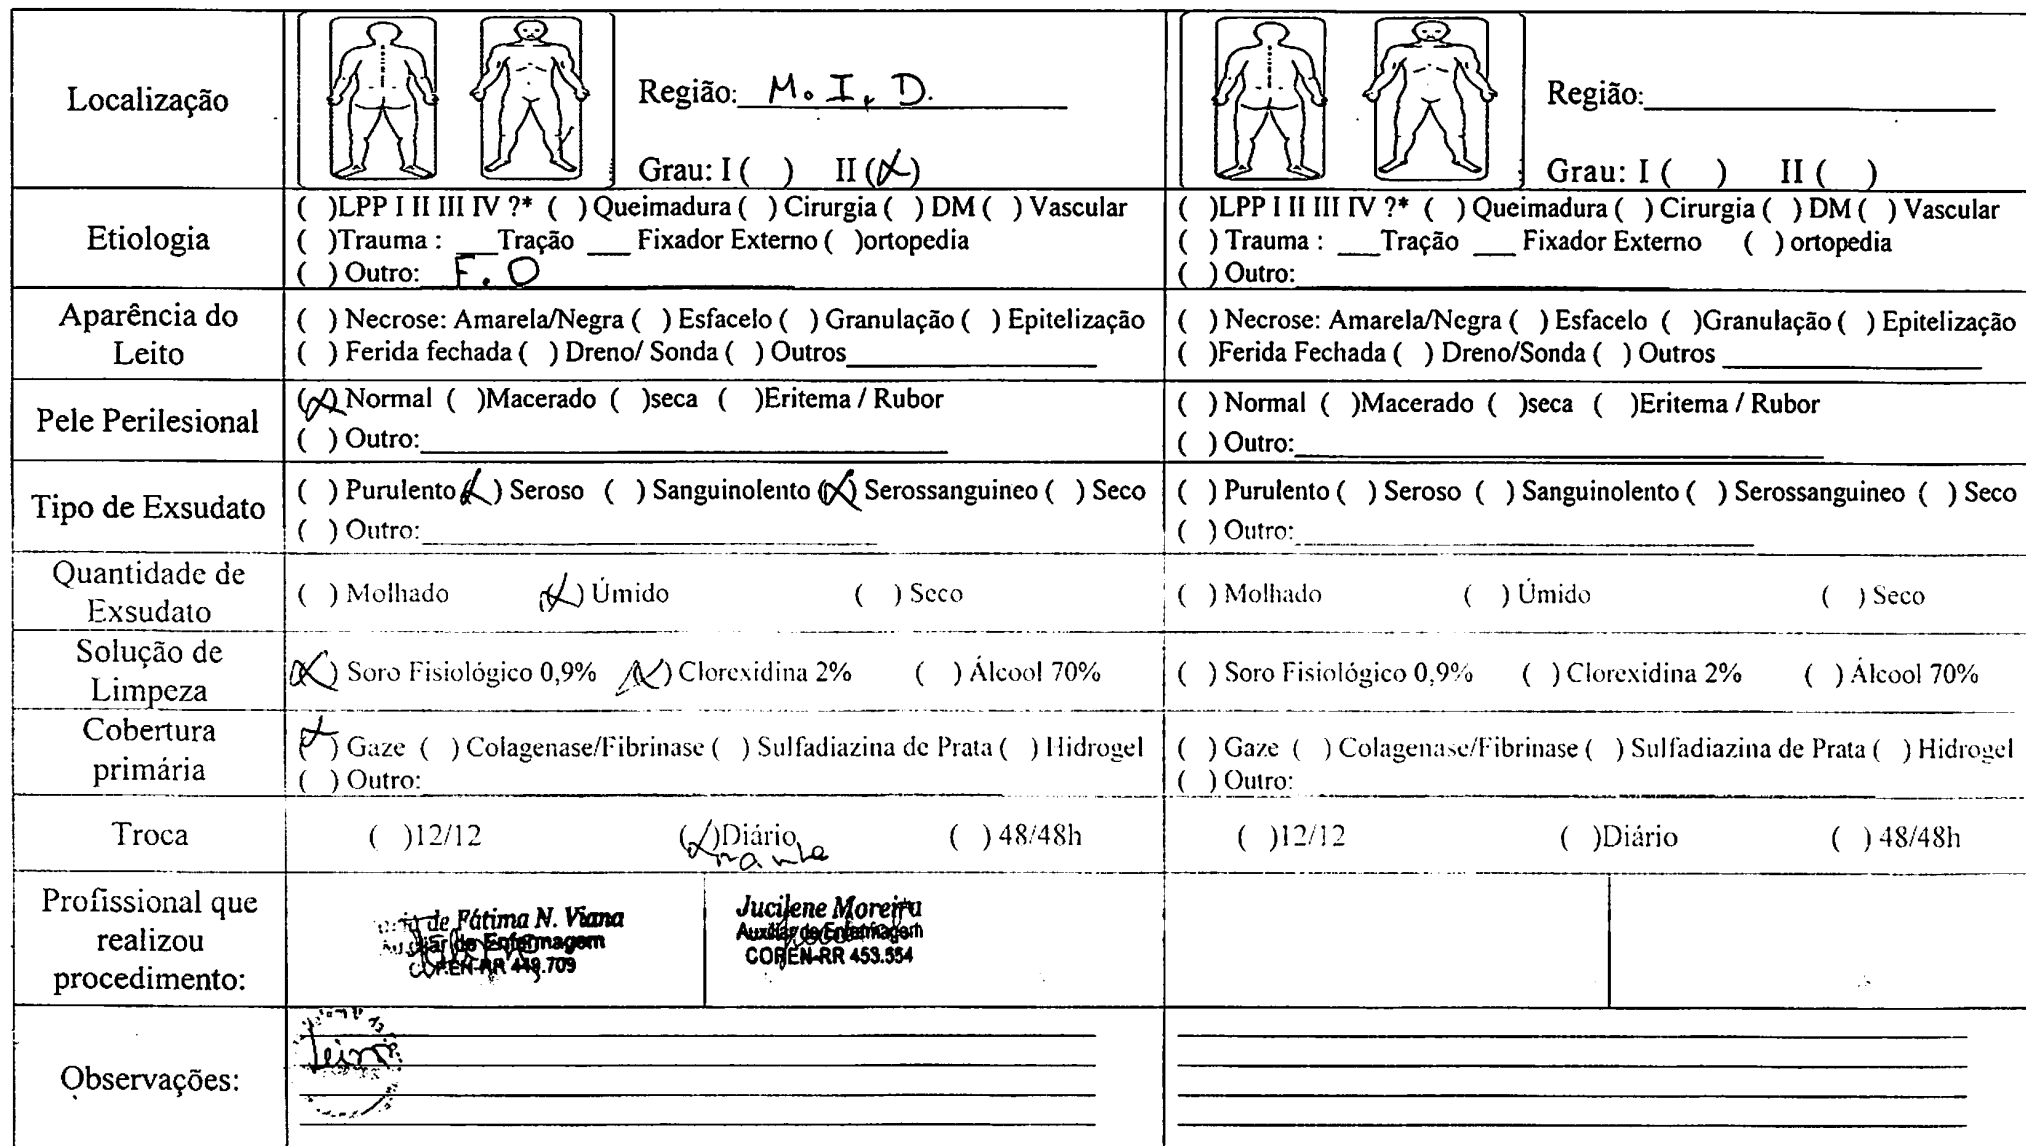 Localização
Região: M. I. D.
Grau: I ( ) II (X)
Região:
Grau: I ( ) II ( )
Etiologia
( )LPP I II III IV ?* ( ) Queimadura ( ) Cirurgia ( ) DM ( ) Vascular
( )Trauma : ___Tração ___ Fixador Externo ( )ortopedia
( ) Outro: F. O
( )LPP I II III IV ?* ( ) Queimadura ( ) Cirurgia ( ) DM ( ) Vascular
( ) Trauma : ___Tração ___ Fixador Externo ( ) ortopedia
( ) Outro:
Aparência do
Leito
( ) Necrose: Amarela/Negra ( ) Esfacelo ( ) Granulação ( ) Epitelização
( ) Ferida fechada ( ) Dreno/ Sonda ( ) Outros
( ) Necrose: Amarela/Negra ( ) Esfacelo ( )Granulação ( ) Epitelização
( )Ferida Fechada ( ) Dreno/Sonda ( ) Outros
Pele Perilesional
(X) Normal ( )Macerado ( )seca ( )Eritema / Rubor
( ) Outro:
( ) Normal ( )Macerado ( )seca ( )Eritema / Rubor
( ) Outro:
Tipo de Exsudato
( ) Purulento (X) Seroso ( ) Sanguinolento (X) Serossanguineo ( ) Seco
( ) Outro:
( ) Purulento ( ) Seroso ( ) Sanguinolento ( ) Serossanguineo ( ) Seco
( ) Outro:
Quantidade de
Exsudato
( ) Molhado (X) Úmido ( ) Seco
( ) Molhado ( ) Úmido ( ) Seco
Solução de
Limpeza
(X) Soro Fisiológico 0,9% (X) Clorexidina 2% ( ) Álcool 70%
( ) Soro Fisiológico 0,9% ( ) Clorexidina 2% ( ) Álcool 70%
Cobertura
primária
(X) Gaze ( ) Colagenase/Fibrinase ( ) Sulfadiazina de Prata ( ) Hidrogel
( ) Outro:
( ) Gaze ( ) Colagenase/Fibrinase ( ) Sulfadiazina de Prata ( ) Hidrogel
( ) Outro:
Troca
( )12/12 (X)Diário ( ) 48/48h
( )12/12 ( )Diário ( ) 48/48h
Profissional que
realizou
procedimento:
de Fátima N. Viana
Auxiliar de Enfermagem
COREN-RR 449.709
Jucilene Moreira
Auxiliar de Enfermagem
COREN-RR 453.554
Observações: